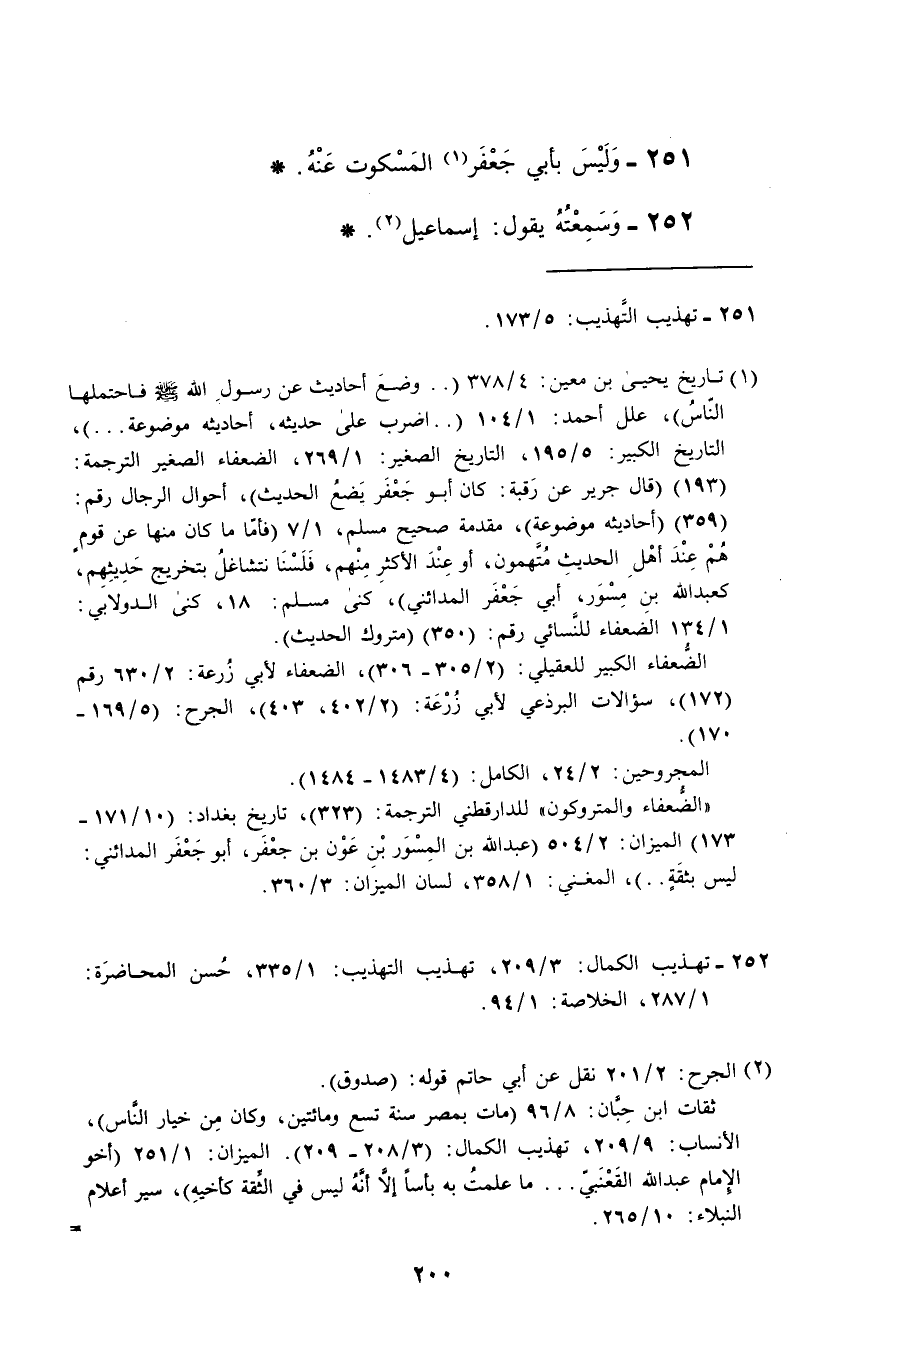 ٢٥١ ـ وَلَيْسَ بأبي جَعْفَر(١) المَسْكوت عَنْهُ. *
٢٥٢ ـ وَسَمِعْتُهُ يقول: إسماعيل(٢). *
٢٥١ ـ تهذيب التَّهذيب: ١٧٣/٥.
(١) تـاريخ يحيىٰ بن معين: ٣٧٨/٤ (.. وضـعَ أحاديث عن رسـولِ الله ﷺ فـاحتملهـا
النّاسُ)، علل أحمد: ١٠٤/١ (..اضرب علىٰ حديثه، أحاديثه موضوعة...)،
التاريخ الكبير: ١٩٥/٥، التاريخ الصغير: ٢٦٩/١، الضعفاء الصغير الترجمة:
(١٩٣) (قال جرير عن رَقبة: كان أبـو جَعْفَر يَضعُ الحديث)، أحوال الرجال رقم:
(٣٥٩) (أحاديثه موضوعة)، مقدمة صحيح مسلم، ٧/١ (فأمّا ما كان منها عن قومٍ
هُمْ عِنْدَ أهْلِ الحديثِ مُتَّهمون، أو عِنْدَ الأكثرِ مِنْهم، فَلَسْنَا نتشاغلُ بتخريج حَدِيثِهم،
كعبدالله بنِ مِسْوَر، أبي جَعْفَر المدائني)، كنىٰ مسـلم: ١٨، كنىٰ الـدولابي:
١٣٤/١ الضعفاء للنَّسائي رقم: (٣٥٠) (متروك الحديث).
الضُّعفاء الكبير للعقيلي: (٣٠٥/٢ ـ ٣٠٦)، الضعفاء لأبي زُرعة: ٦٣٠/٢ رقم
(١٧٢)، سؤالات البرذعي لأبي زُرْعَة: (٤٠٢/٢، ٤٠٣)، الجرح: (١٦٩/٥ ـ
١٧٠).
المجروحين: ٢٤/٢، الكامل: (١٤٨٣/٤ ـ ١٤٨٤).
«الضُّعفاء والمتروكون» للدارقطني الترجمة: (٣٢٣)، تاريخ بغداد: (١٧١/١٠ ـ
١٧٣) الميزان: ٥٠٤/٢ (عبدالله بن المِسْوَر بْن عَوْن بن جعْفَر، أبو جَعْفَر المدائني:
ليس بثقَةٍ..)، المغـني: ٣٥٨/١، لسان الميزان: ٣٦٠/٣.
٢٥٢ ـ تهـذيب الكمال: ٢٠٩/٣، تهـذيب التهذيب: ٣٣٥/١، حُسن المحـاضرَة:
٢٨٧/١، الخلاصة: ٩٤/١.
(٢) الجرح: ٢٠١/٢ نقل عن أبي حاتم قوله: (صدوق).
ثقات ابن حِبَّان: ٩٦/٨ (مات بمصر سنة تسع ومائتين، وكان مِن خيار النَّاس)،
الأنساب: ٢٠٩/٩، تهذيب الكمال: (٢٠٨/٣ ـ ٢٠٩). الميزان: ٢٥١/١ (أخو
الإمام عبدالله القَعْنَبيّ... ما علمتُ به بأساً إلاَّ أنَّهُ ليس في الثِّقة كأخيهِ)، سير أعلام
النبلاء: ٢٦٥/١٠.
=
٢٠٠